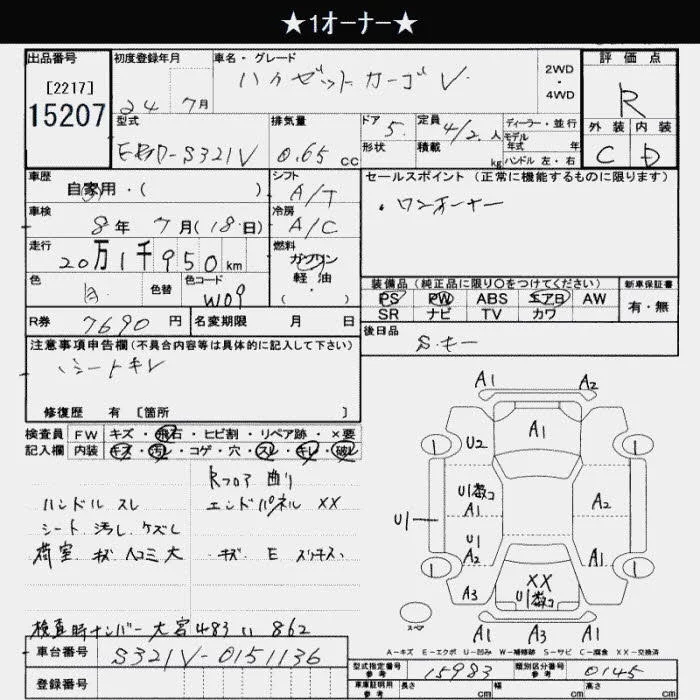 ★1オーナー★
出品番号
[2217]
15207
初度登録年月
24 年 7月
車名・グレード
ハイゼットカーゴ V
2WD
・
4WD
評価点
R
外装 内装
C D
型式
EBD-S321V
排気量
0.65 cc
ドア 5
形状
定員 4/2 人
積載 kg
ディーラー・並行
モデル
年式 年
ハンドル 左・右
車歴
自家用・( )
シフト
A/T
セールスポイント(正常に機能するものに限ります)
・ワンオーナー
車検
8年 7月(18日)
冷房
A/C
走行
20万1千950km
燃料
ガソリン
軽油
・( )
色
白
色替
色コード
W09
装備品(純正品に限り○をつけてください)
PS PW ABS エアB AW
SR ナビ TV カワ
新車保証書
有・無
R券 7690円
名変期限 月 日
後日品
S.キー
注意事項申告欄(不具合内容等は具体的に記入して下さい)
シートキレ
修復歴 有 [箇所 ]
検査員
記入欄
FW キズ・飛石・ヒビ割・リペア跡・×要
内装 キズ・汚レ・コゲ・穴・スレ・キレ・破レ
Rフロア 曲り
ハンドル スレ
エンドパネル XX
シート 汚し.ケズレ
荷室 キズ ヘコミ大
キズ E スリキズ.
検査時ナンバー 大宮483 い 862
車台番号
S321V-0151136
登録番号
A1 A2
A1
U2
1 1
U1数コ
A1
A2
U1
U1
A2
A1
1 1
XX
U1数コ
A3
A1 A3 A1
スペア
A-キズ E-エクボ U-凹み W-補修跡 S-サビ C-腐食 XX-交換済
型式指定番号
参考
15983
類別区分番号
参考
0145
車庫証明用
参考
長さ cm
幅 cm
高さ cm